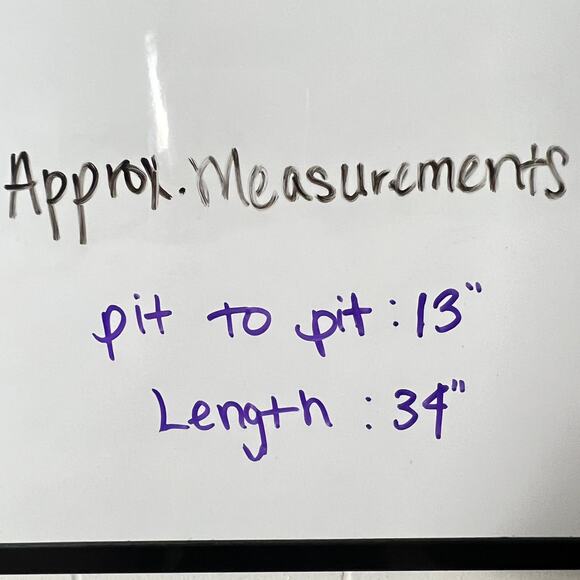 Approx. Measurements
pit to pit : 13"
Length : 34"